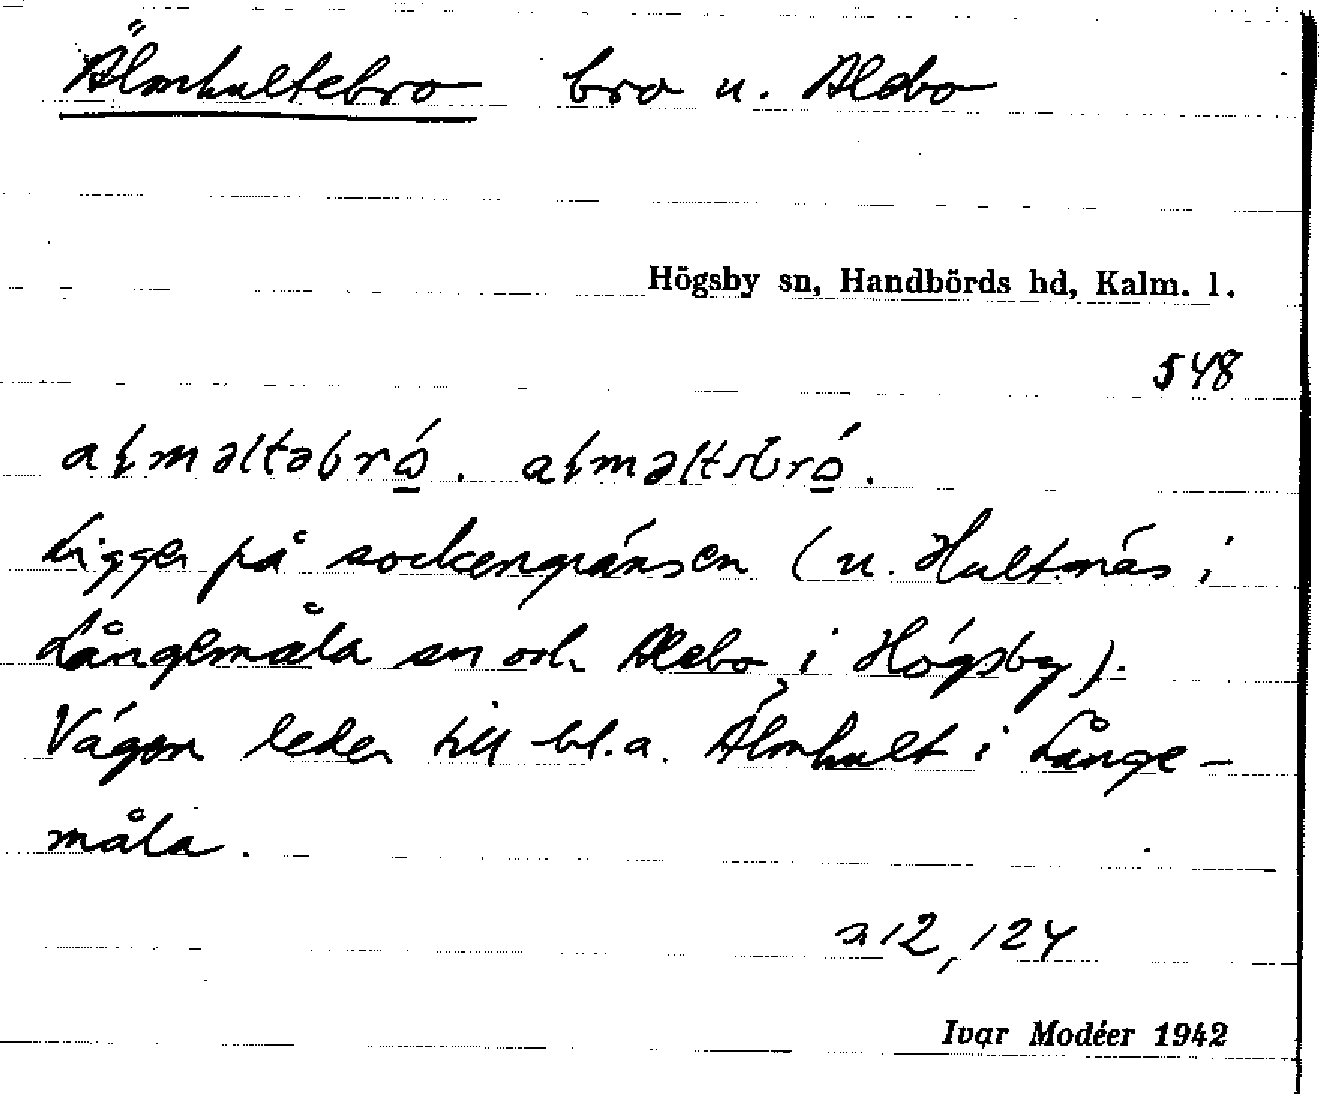 Älmhultebro bro u. Alebo
Högsby sn, Handbörds hd, Kalm. l.
548
Ligger på sockengränsen (u. Hultnäs i
Långemåla sn och Alebo i Högsby).
Vägen leder till bl.a. Älmhult i Långe-
måla.
a12, 124
Ivar Modéer 1942